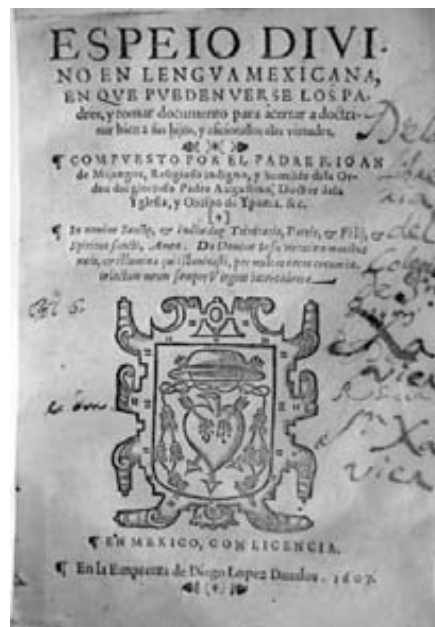 ESPEIO DIVI-
NO EN LENGVA MEXICANA,
EN QVE PVEDEN VERSE LOS PA-
dres, y tomar documento para acertar a doctri-
nar bien a sus hijos, y aficionallos alas virtudes.
¶ COMPVESTO POR EL PADRE F. IOAN
de Mijangos, Religioso indigno, y humilde dela Or-
den del glorioso Padre Augustino, Doctor dela
Yglesia, y Obispo de Yponia. &c.
¶ In nomine Sanctę, & Indiuiduę Trinitatis, Patris, & Filij, &
Spiritus sancti, Amen.
¶ EN MEXICO, CON LICENCIA.
¶ En la Emprenta de Diego Lopez Daualos. 1607.
Dela
del
Colegio
de S.
Xa
vier
Sn. Xa
vier